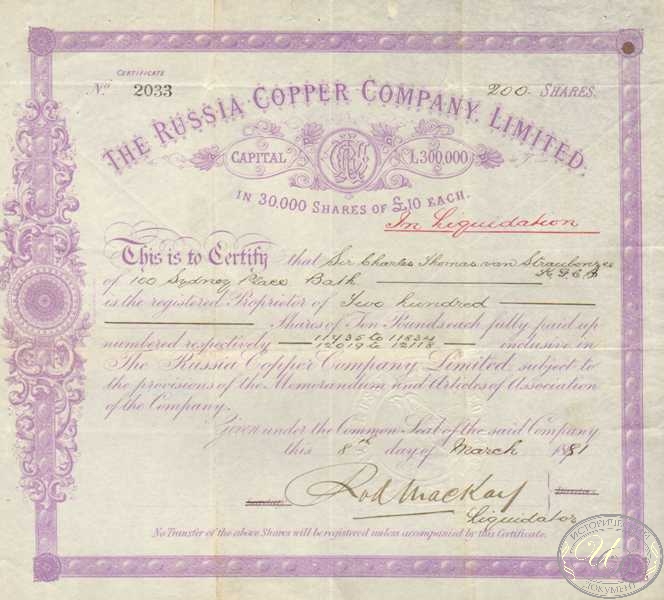 CERTIFICATE
No. 2033
200 SHARES.
THE RUSSIA COPPER COMPANY, LIMITED.
CAPITAL £300,000
IN 30,000 SHARES OF £10 EACH.
In Liquidation
This is to Certify that Sir Charles Thomas van Straubenzee K.G.C.B
of 100 Sydney Place Bath
is the registered Proprietor of Two hundred
Shares of Ten Pounds each, fully paid up
11435 to 11534
numbered respectively 12019 to 12118 inclusive in
The Russia Copper Company, Limited, subject to
the provisions of the Memorandum and Articles of Association
of the Company.
Given under the Common Seal of the said Company
this 8th day of March 1881
Rod Mackay
Liquidator
No Transfer of the above Shares will be registered unless accompanied by this Certificate.
ИСТОРИЧЕСКИЙ
И
ДОКУМЕНТ